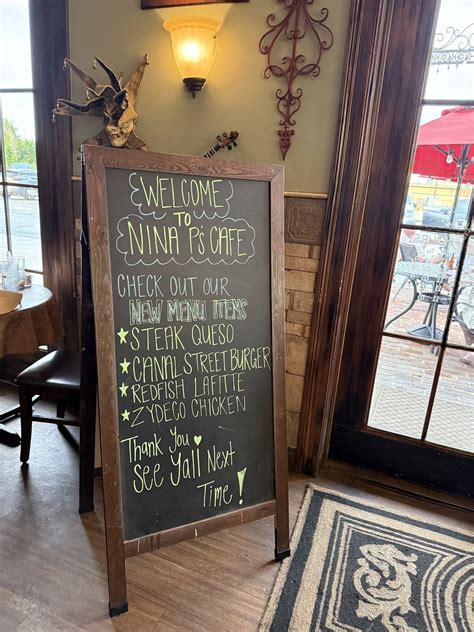 WELCOME
TO
NINA P's CAFE
CHECK OUT OUR
NEW MENU ITEMS
★ STEAK QUESO
★ CANAL STREET BURGER
★ REDFISH LAFITTE
★ ZYDECO CHICKEN
Thank You ♥
See Yall Next
Time!